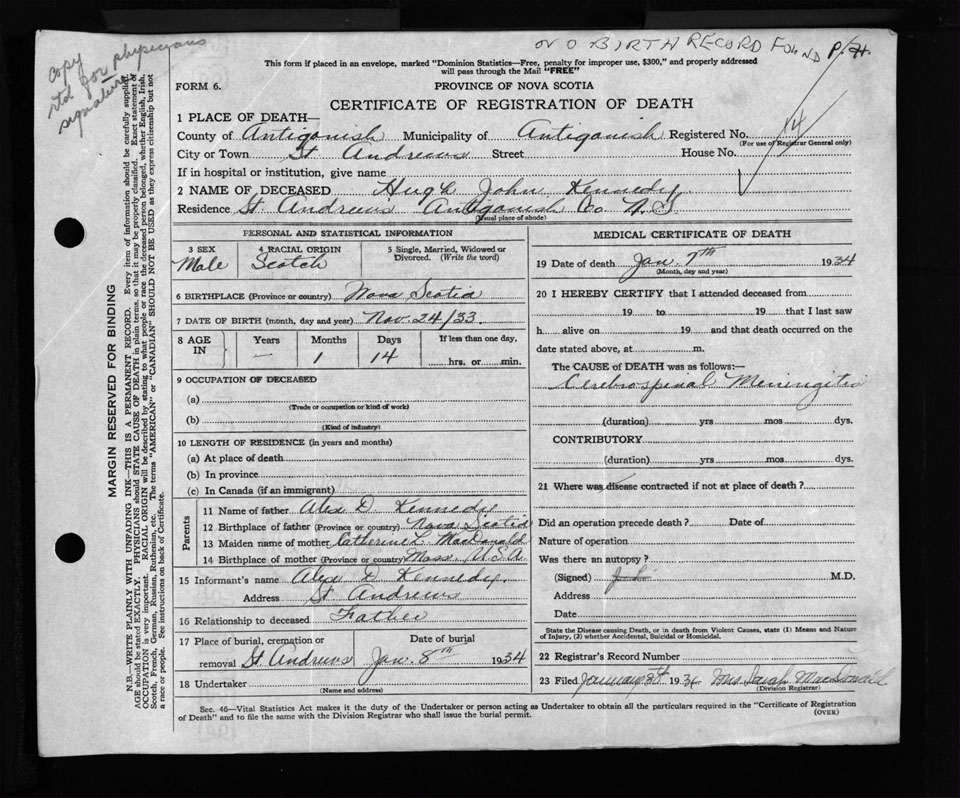 copy
rtd for physicians
signature
No BIRTH RECORD FOUND
This form if placed in an envelope, marked "Dominion Statistics—Free, penalty for improper use, $300," and properly addressed
will pass through the Mail "FREE"
FORM 6.
PROVINCE OF NOVA SCOTIA
CERTIFICATE OF REGISTRATION OF DEATH
1 PLACE OF DEATH—
County of Antigonish Municipality of Antigonish Registered No. 14
(For use of Registrar General only)
City or Town St Andrews Street House No.
If in hospital or institution, give name
2 NAME OF DECEASED Hugh John Kennedy
Residence St. Andrews Antigonish Co N.S.
(Usual place of abode)
PERSONAL AND STATISTICAL INFORMATION
3 SEX 4 RACIAL ORIGIN 5 Single, Married, Widowed or
Divorced. (Write the word)
Male Scotch
6 BIRTHPLACE (Province or country) Nova Scotia
7 DATE OF BIRTH (month, day and year) Nov. 24/33.
8 AGE IN Years Months Days If less than one day,
— 1 14 hrs. or min.
9 OCCUPATION OF DECEASED
(a)
(Trade or occupation or kind of work)
(b)
(Kind of industry)
10 LENGTH OF RESIDENCE (in years and months)
(a) At place of death
(b) In province
(c) In Canada (if an immigrant)
Parents
11 Name of father Alex D. Kennedy
12 Birthplace of father (Province or country) Nova Scotia
13 Maiden name of mother Catherine L. MacDonald
14 Birthplace of mother (Province or country) Mass. U.S.A
15 Informant's name Alex D Kennedy.
Address St Andrews
16 Relationship to deceased Father
17 Place of burial, cremation or Date of burial
removal St. Andrews Jan. 8th 1934
18 Undertaker
(Name and address)
MEDICAL CERTIFICATE OF DEATH
19 Date of death Jan. 7th 1934
(Month, day and year)
20 I HEREBY CERTIFY that I attended deceased from
19 to 19 that I last saw
h alive on 19 and that death occurred on the
date stated above, at m.
The CAUSE of DEATH was as follows:—
Cerebrospinal Meningitis
(duration) yrs mos dys.
CONTRIBUTORY
(duration) yrs mos dys.
21 Where was disease contracted if not at place of death?
Did an operation precede death? Date of
Nature of operation
Was there an autopsy?
(Signed) M.D.
Address
Date
State the Disease causing Death, or in death from Violent Causes, state (1) Means and Nature
of Injury, (2) whether Accidental, Suicidal or Homicidal.
22 Registrar's Record Number
23 Filed January 8th 1934 Mrs Sarah MacDonald
(Division Registrar)
Sec. 46—Vital Statistics Act makes it the duty of the Undertaker or person acting as Undertaker to obtain all the particulars required in the "Certificate of Registration
of Death" and to file the same with the Division Registrar who shall issue the burial permit.
(OVER)
MARGIN RESERVED FOR BINDING
N.B.—WRITE PLAINLY WITH UNFADING INK—THIS IS A PERMANENT RECORD. Every item of information should be carefully supplied.
AGE should be stated EXACTLY. PHYSICIANS should STATE CAUSE OF DEATH in plain terms, so that it may be properly classified. Exact statement of
OCCUPATION is very important. RACIAL ORIGIN will be described by stating to what people or race the deceased person belonged, whether English, Irish,
Scotch, French, German, Russian, Ruthenian, etc. The terms "AMERICAN" or "CANADIAN" SHOULD NOT BE USED as they express citizenship but not
a race or people. See instructions on back of Certificate.